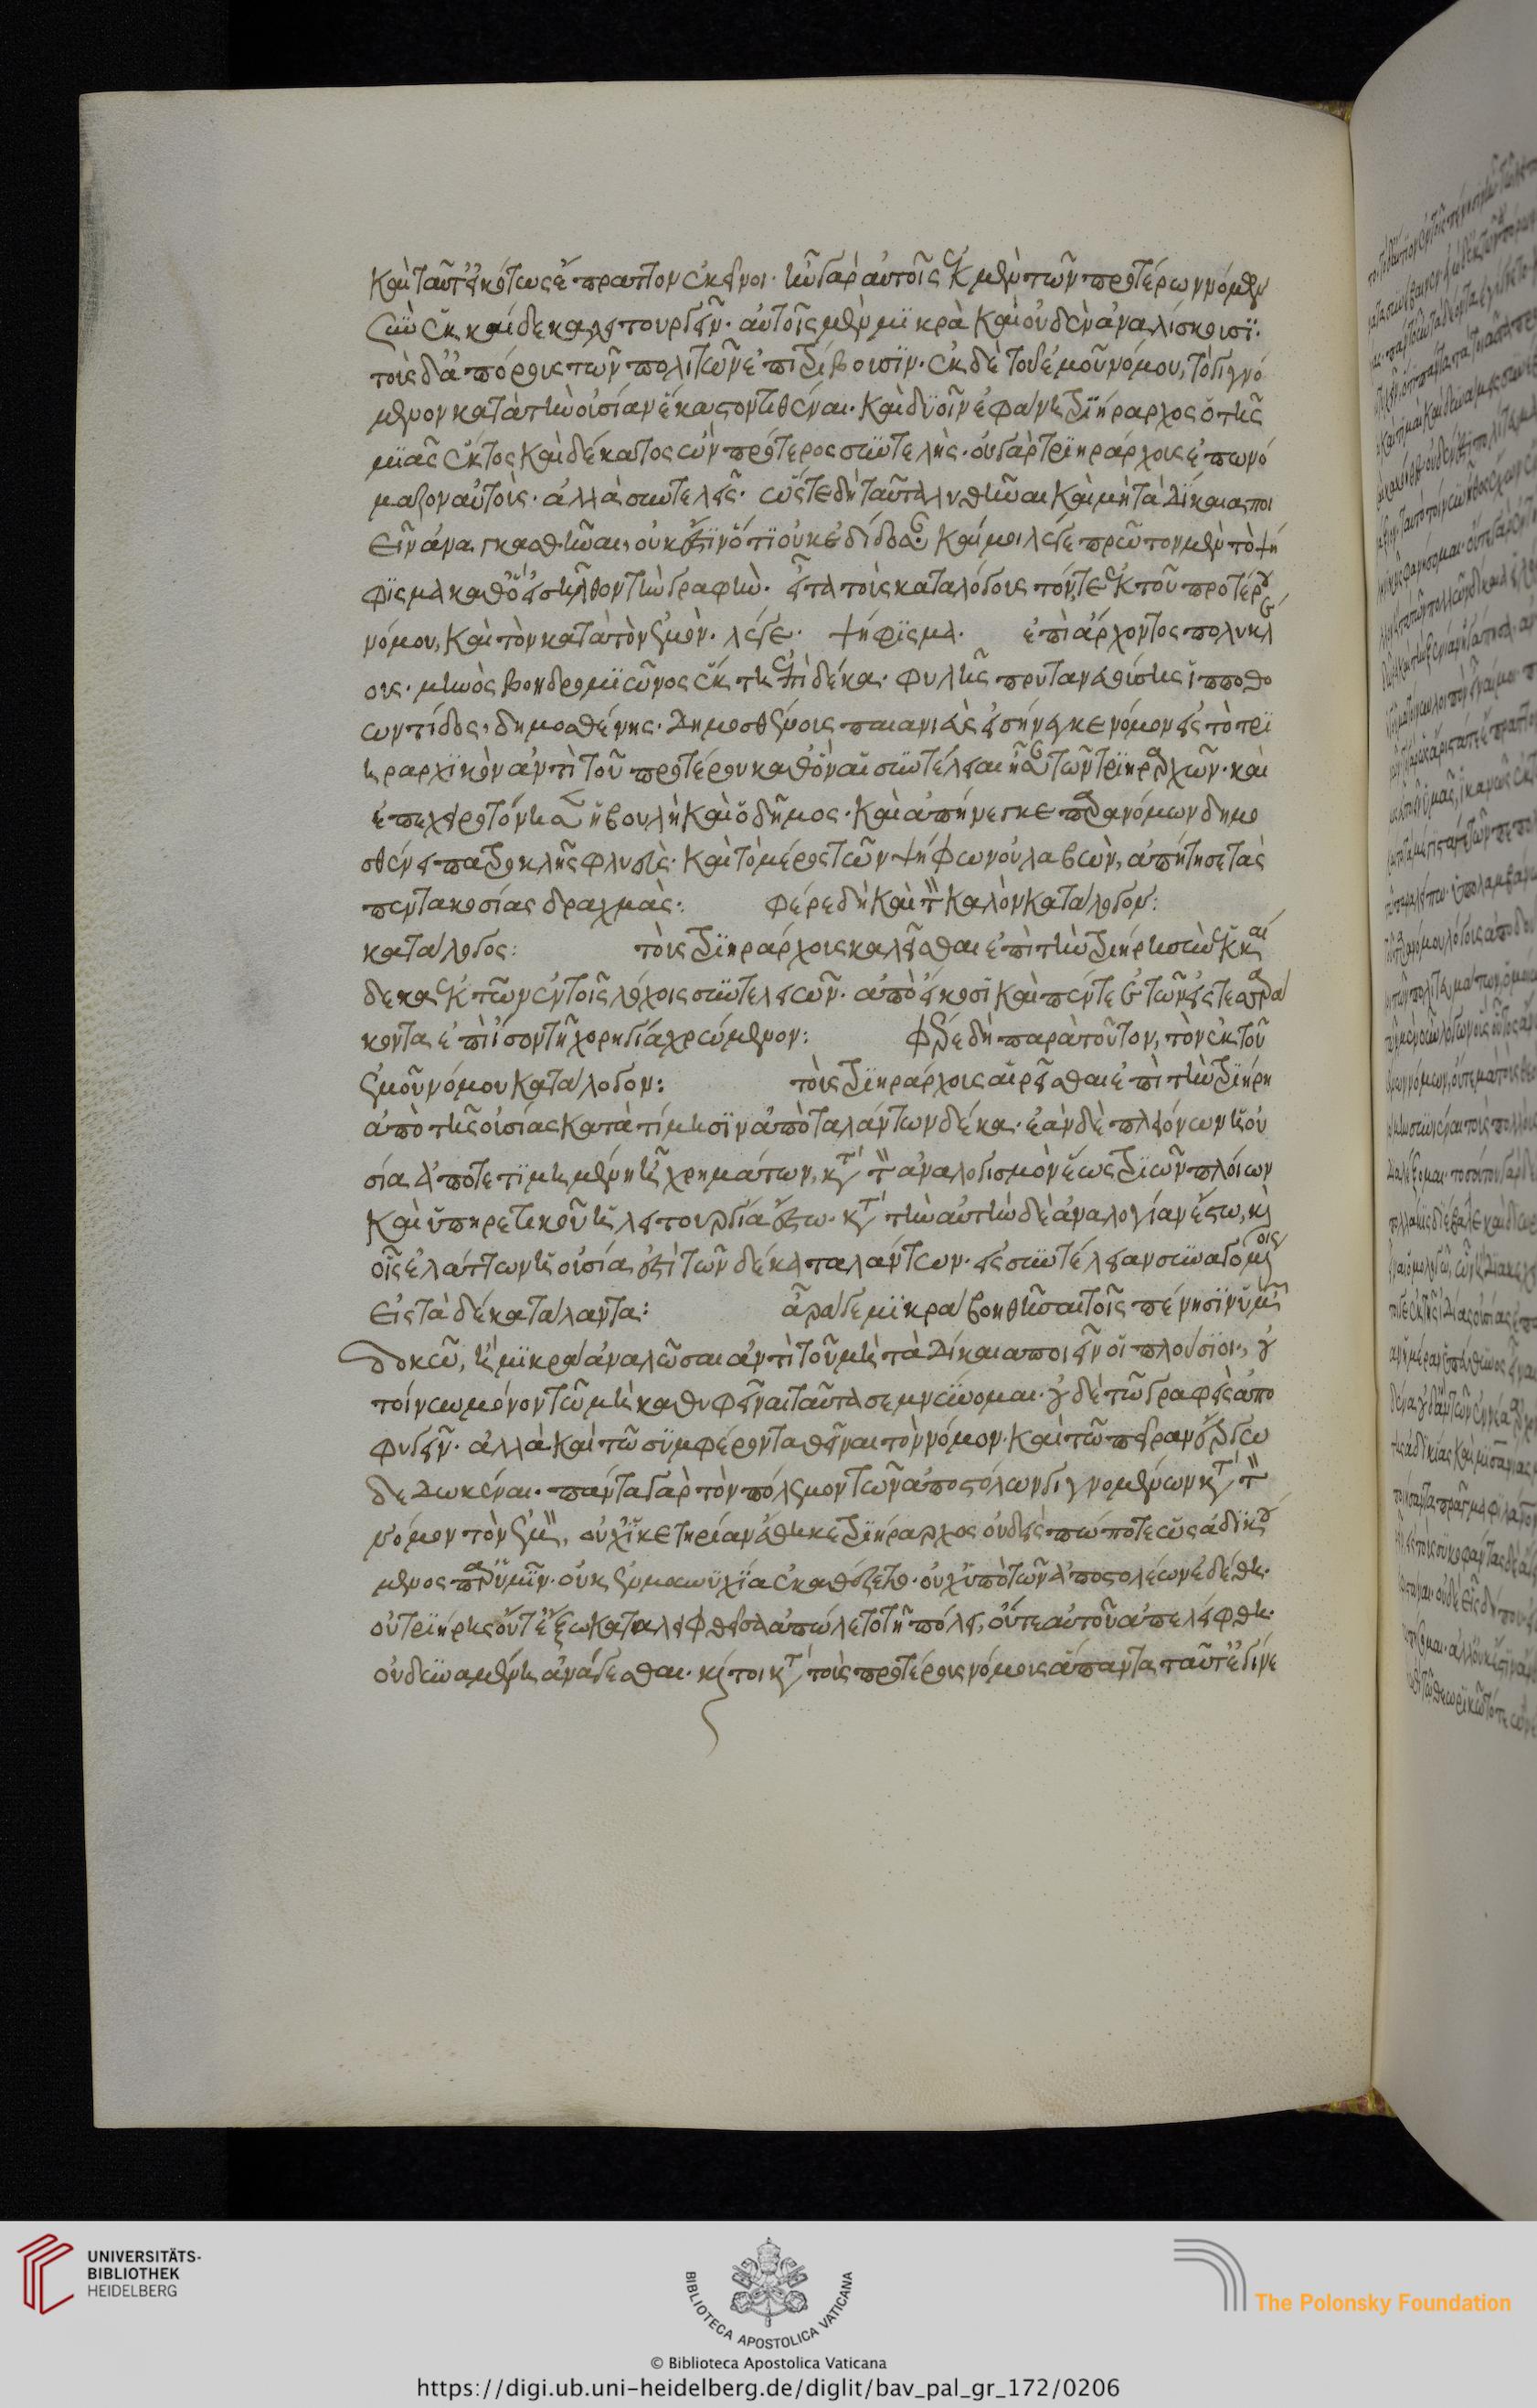 καὶ ταῦτ' εἰκότως ἔπραττον ἐκεῖνοι· ἦν γὰρ αὐτοῖς ἐκ μὲν τῶν προτέρων νόμων
συνεκκαίδεκα λειτουργεῖν· αὐτοῖς μὲν μϊκρὰ καὶ οὐδὲν ἀναλίσκουσϊ·
τοὺς δ' ἀπόρους τῶν πολιτῶν ἐπιτρίβουσϊν· ἐκ δὲ τοῦ ἐμοῦ νόμου, τὸ γιγνό
μενον κατὰ τὴν οὐσίαν ἕκαστον τιθέναι· καὶ δυοῖν ἐφάνη τρϊήραρχος ὁ τῆς
μϊᾶς ἕκτος καὶ δέκατος ὢν πρότερος συντελής· οὐ γὰρ τρϊηράρχους ἐπωνό
μαζον αὑτοὺς· ἀλλὰ συντελεῖς· ὥστε δὴ ταῦτα λυθῆναι καὶ μὴ τὰ δίκαια ποι
εῖν ἀναγκασθῆναι, οὐκ ἔσθ' ὅτϊ οὐκ ἐδίδοσαν· καί μοι λέγε πρῶτον μὲν τὸ ψή
φϊσμα καθ' ὃ εἰσῆλθον τὴν γραφὴν· εἶτα τοὺς καταλόγους τόν, τε ἐκ τοῦ προτέρου
νόμου, καὶ τὸν κατὰ τὸν ἐμὸν· λέγε· ψήφϊσμα· ἐπὶ ἄρχοντος πολυκλέ
ους· μηνὸς βοηδρομϊῶνος ἕκτῃ ἐπὶ δέκα· φυλῆς πρυτανευούσης ἱπποθο
ωντίδος, δημοσθένης· δημοσθένους παιανιεὺς εἰσήνεγκε νόμον εἰς τὸ τρϊ
ηραρχϊκὸν ἀντὶ τοῦ προτέρου καθ' ὃν αἱ συντέλειαι ἦσαν τῶν τρϊηράρχων· καὶ
ἐπεχειροτόνησεν ἡ βουλὴ καὶ ὁ δῆμος· καὶ ἀπήνεγκε παρανόμων δημο
σθένει πατροκλῆς φλυεὺς· καὶ τὸ μέρος τῶν ψήφων οὐ λαβὼν, ἀπήτησε τὰς
πεντακοσίας δραχμὰς: φέρε δὴ καὶ τὸν καλὸν κατάλογον:
κατάλογος: τοὺς τρϊηράρχους καλεῖσθαι ἐπὶ τὴν τρϊήρη συνεκκαί
δεκα ἐκ τῶν ἐν τοῖς λόχοις συντελειῶν· ἀπὸ εἴκοσϊ καὶ πέντε ἐτῶν εἰς τεσσαρά
κοντα ἐπὶ ἴσον τῇ χορηγίᾳ χρώμενον: φέρε δὴ παρὰ τοῦτον, τὸν ἐκ τοῦ
ἐμοῦ νόμου κατάλογον: τοὺς τρϊηράρχους αἱρεῖσθαι ἐπὶ τὴν τρϊήρη
ἀπὸ τῆς οὐσίας κατὰ τίμησϊν ἀπὸ ταλάντων δέκα· ἐὰν δὲ πλειόνων ἡ οὐ
σία ἀποτετϊμημένη ᾖ χρημάτων, κατὰ τὸν ἀναλογισμὸν ἕως τρϊῶν πλοίων
καὶ ὑπηρετικοῦ ἡ λειτουργία ἔστω· κατὰ τὴν αὐτὴν δὲ ἀναλογίαν ἔστω, καὶ
οἷς ἐλάττων ἡ οὐσία ἐστὶ τῶν δέκα ταλάντων· εἰς συντέλειαν συναγομένοις
εἰς τὰ δέκα τάλαντα: ἆρά γε μϊκρὰ βοηθῆσαι τοῖς πένησϊν ὑμῶν
δοκῶ, ἢ μϊκρὰ ἀναλῶσαι ἀντὶ τοῦ μὴ τὰ δίκαια ποιεῖν οἱ πλούσϊοι, οὐ
τοίνυν μόνον τῷ μὴ καθυφεῖναι ταῦτα σεμνύνομαι· οὐδὲ τῷ γραφεὶς ἀπο
φυγεῖν· ἀλλὰ καὶ τῷ συμφέροντα θεῖναι τὸν νόμον· καὶ τῷ πεῖραν ἔργῳ
δεδωκέναι· πάντα γὰρ τὸν πόλεμον τῶν ἀποστόλων γιγνομένων κατὰ τὸν
νόμον τὸν ἐμὸν, οὐχ ἱκετηρίαν ἔθηκε τρϊήραρχος οὐδεὶς πώποτε ὡς ἀδϊκού
μενος παρ' ὑμῖν· οὐκ ἐν μουνυχϊα ἐκαθέζετο· οὐχ ὑπὸ τῶν ἀποστολέων ἐδέθη·
οὐ τρϊήρης οὔτ' ἔξω καταλειφθεῖσα ἀπώλετο τῇ πόλει, οὔτε αὐτοῦ ἀπελείφθη·
οὐ δυναμένη ἀνάγεσθαι· καίτοι κατὰ τοὺς προτέρους νόμους ἅπαντα ταῦτ' ἐγίγνε
UNIVERSITÄTS-
BIBLIOTHEK
HEIDELBERG
BIBLIOTECA APOSTOLICA VATICANA
The Polonsky Foundation
© Biblioteca Apostolica Vaticana
https://digi.ub.uni-heidelberg.de/diglit/bav_pal_gr_172/0206